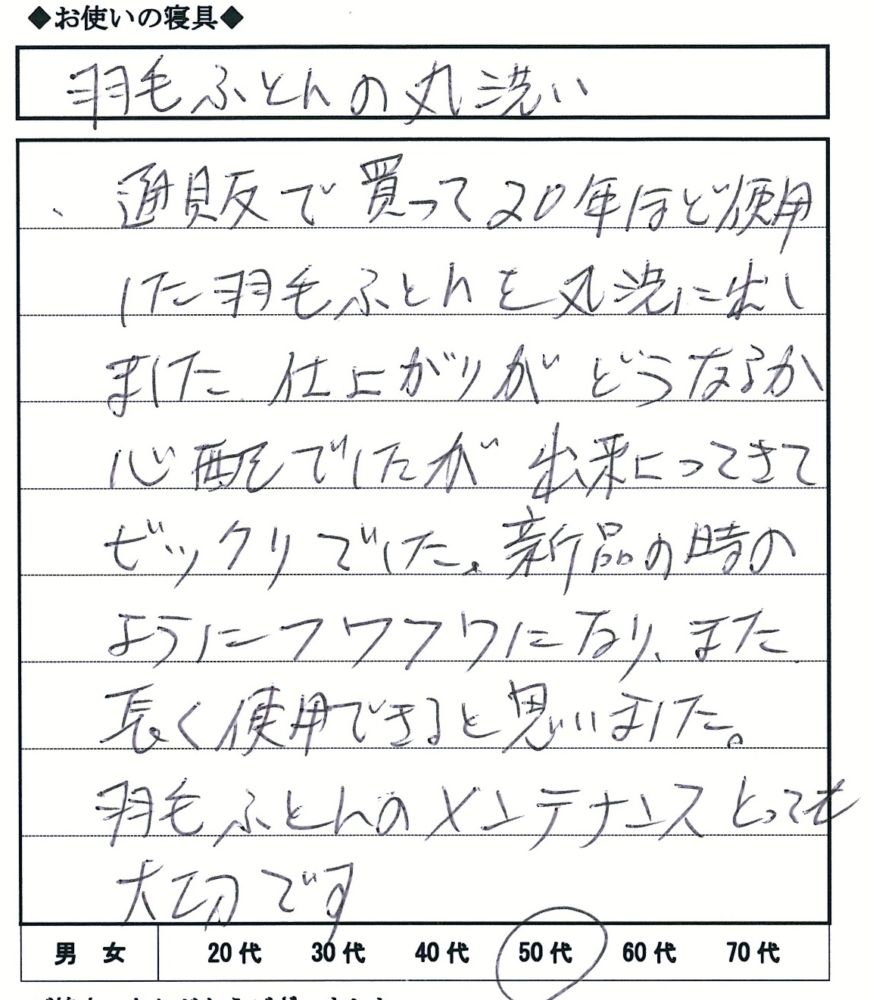 ◆お使いの寝具◆
羽毛ふとんの丸洗い
通販で買って20年ほど使用
した羽毛ふとんを丸洗に出し
ました 仕上がりがどうなるか
心配でしたが 出来上ってきて
ビックリでした。新品の時の
ようにフワフワになり、また
長く使用できると思いました。
羽毛ふとんのメンテナンスとっても
大切です
男 女 20代 30代 40代 50代 60代 70代